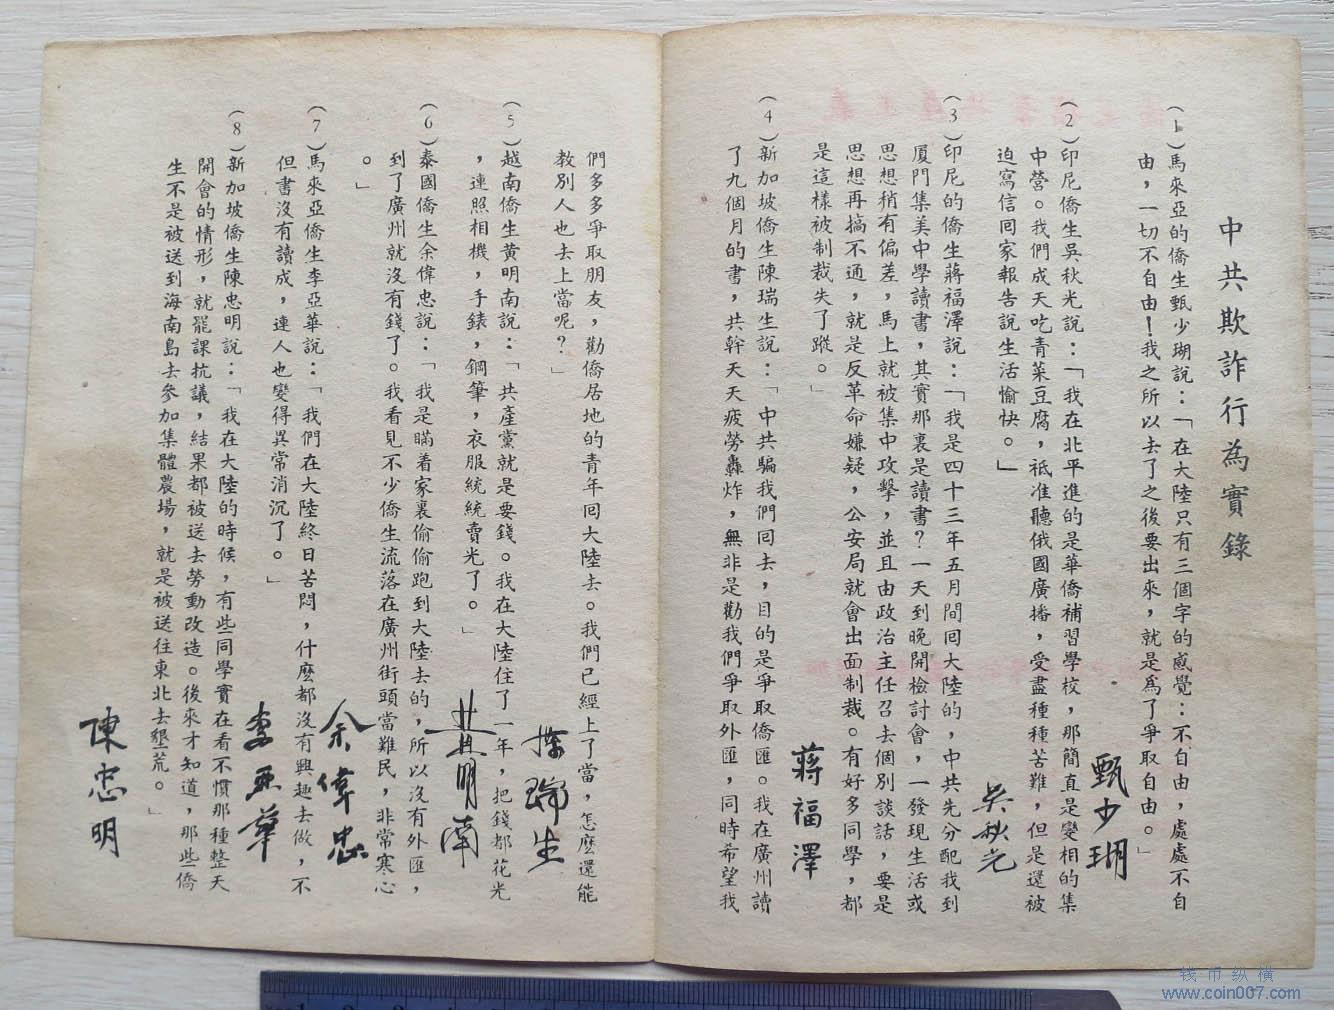 中共欺詐行為實錄
(1)馬來亞的僑生甄少瑚說：「在大陸只有三個字的感覺：不自由，處處不自
由，一切不自由！我之所以去了之後要出來，就是爲了爭取自由。」
甄少瑚
(2)印尼僑生吳秋光說：「我在北平進的是華僑補習學校，那簡直是變相的集
中營。我們成天吃青菜豆腐，祗准聽俄國廣播，受盡種種苦難，但是還被
迫寫信回家報告說生活愉快。」
吳秋光
(3)印尼的僑生蔣福澤說：「我是四十三年五月間回大陸的，中共先分配我到
厦門集美中學讀書，其實那裏是讀書？一天到晚開檢討會，一發現生活或
思想稍有偏差，馬上就被集中攻擊，並且由政治主任召去個別談話，要是
思想再搞不通，就是反革命嫌疑，公安局就會出面制裁。有好多同學，都
是這樣被制裁失了蹤。」
蔣福澤
(4)新加坡僑生陳瑞生說：「中共騙我們回去，目的是爭取僑匯。我在廣州讀
了九個月的書，共幹天天疲勞轟炸，無非是勸我們爭取外匯，同時希望我
們多多爭取朋友，勸僑居地的青年回大陸去。我們已經上了當，怎麼還能
教別人也去上當呢？」
陳瑞生
(5)越南僑生黄明南說：「共產黨就是要錢。我在大陸住了一年，把錢都花光
，連照相機，手錶，鋼筆，衣服統統賣光了。」
黄明南
(6)泰國僑生余偉忠說：「我是瞞着家裏偷偷跑到大陸去的，所以沒有外匯，
到了廣州就沒有錢了。我看見不少僑生流落在廣州街頭當難民，非常寒心
。」
余偉忠
(7)馬來亞僑生李亞華說：「我們在大陸終日苦悶，什麼都沒有興趣去做，不
但書沒有讀成，連人也變得異常消沉了。」
李亞華
(8)新加坡僑生陳忠明說：「我在大陸的時候，有些同學實在看不慣那種整天
開會的情形，就罷課抗議，結果都被送去勞動改造。後來才知道，那些僑
生不是被送到海南島去參加集體農場，就是被送往東北去墾荒。」
陳忠明
钱币纵横
www.coin007.com